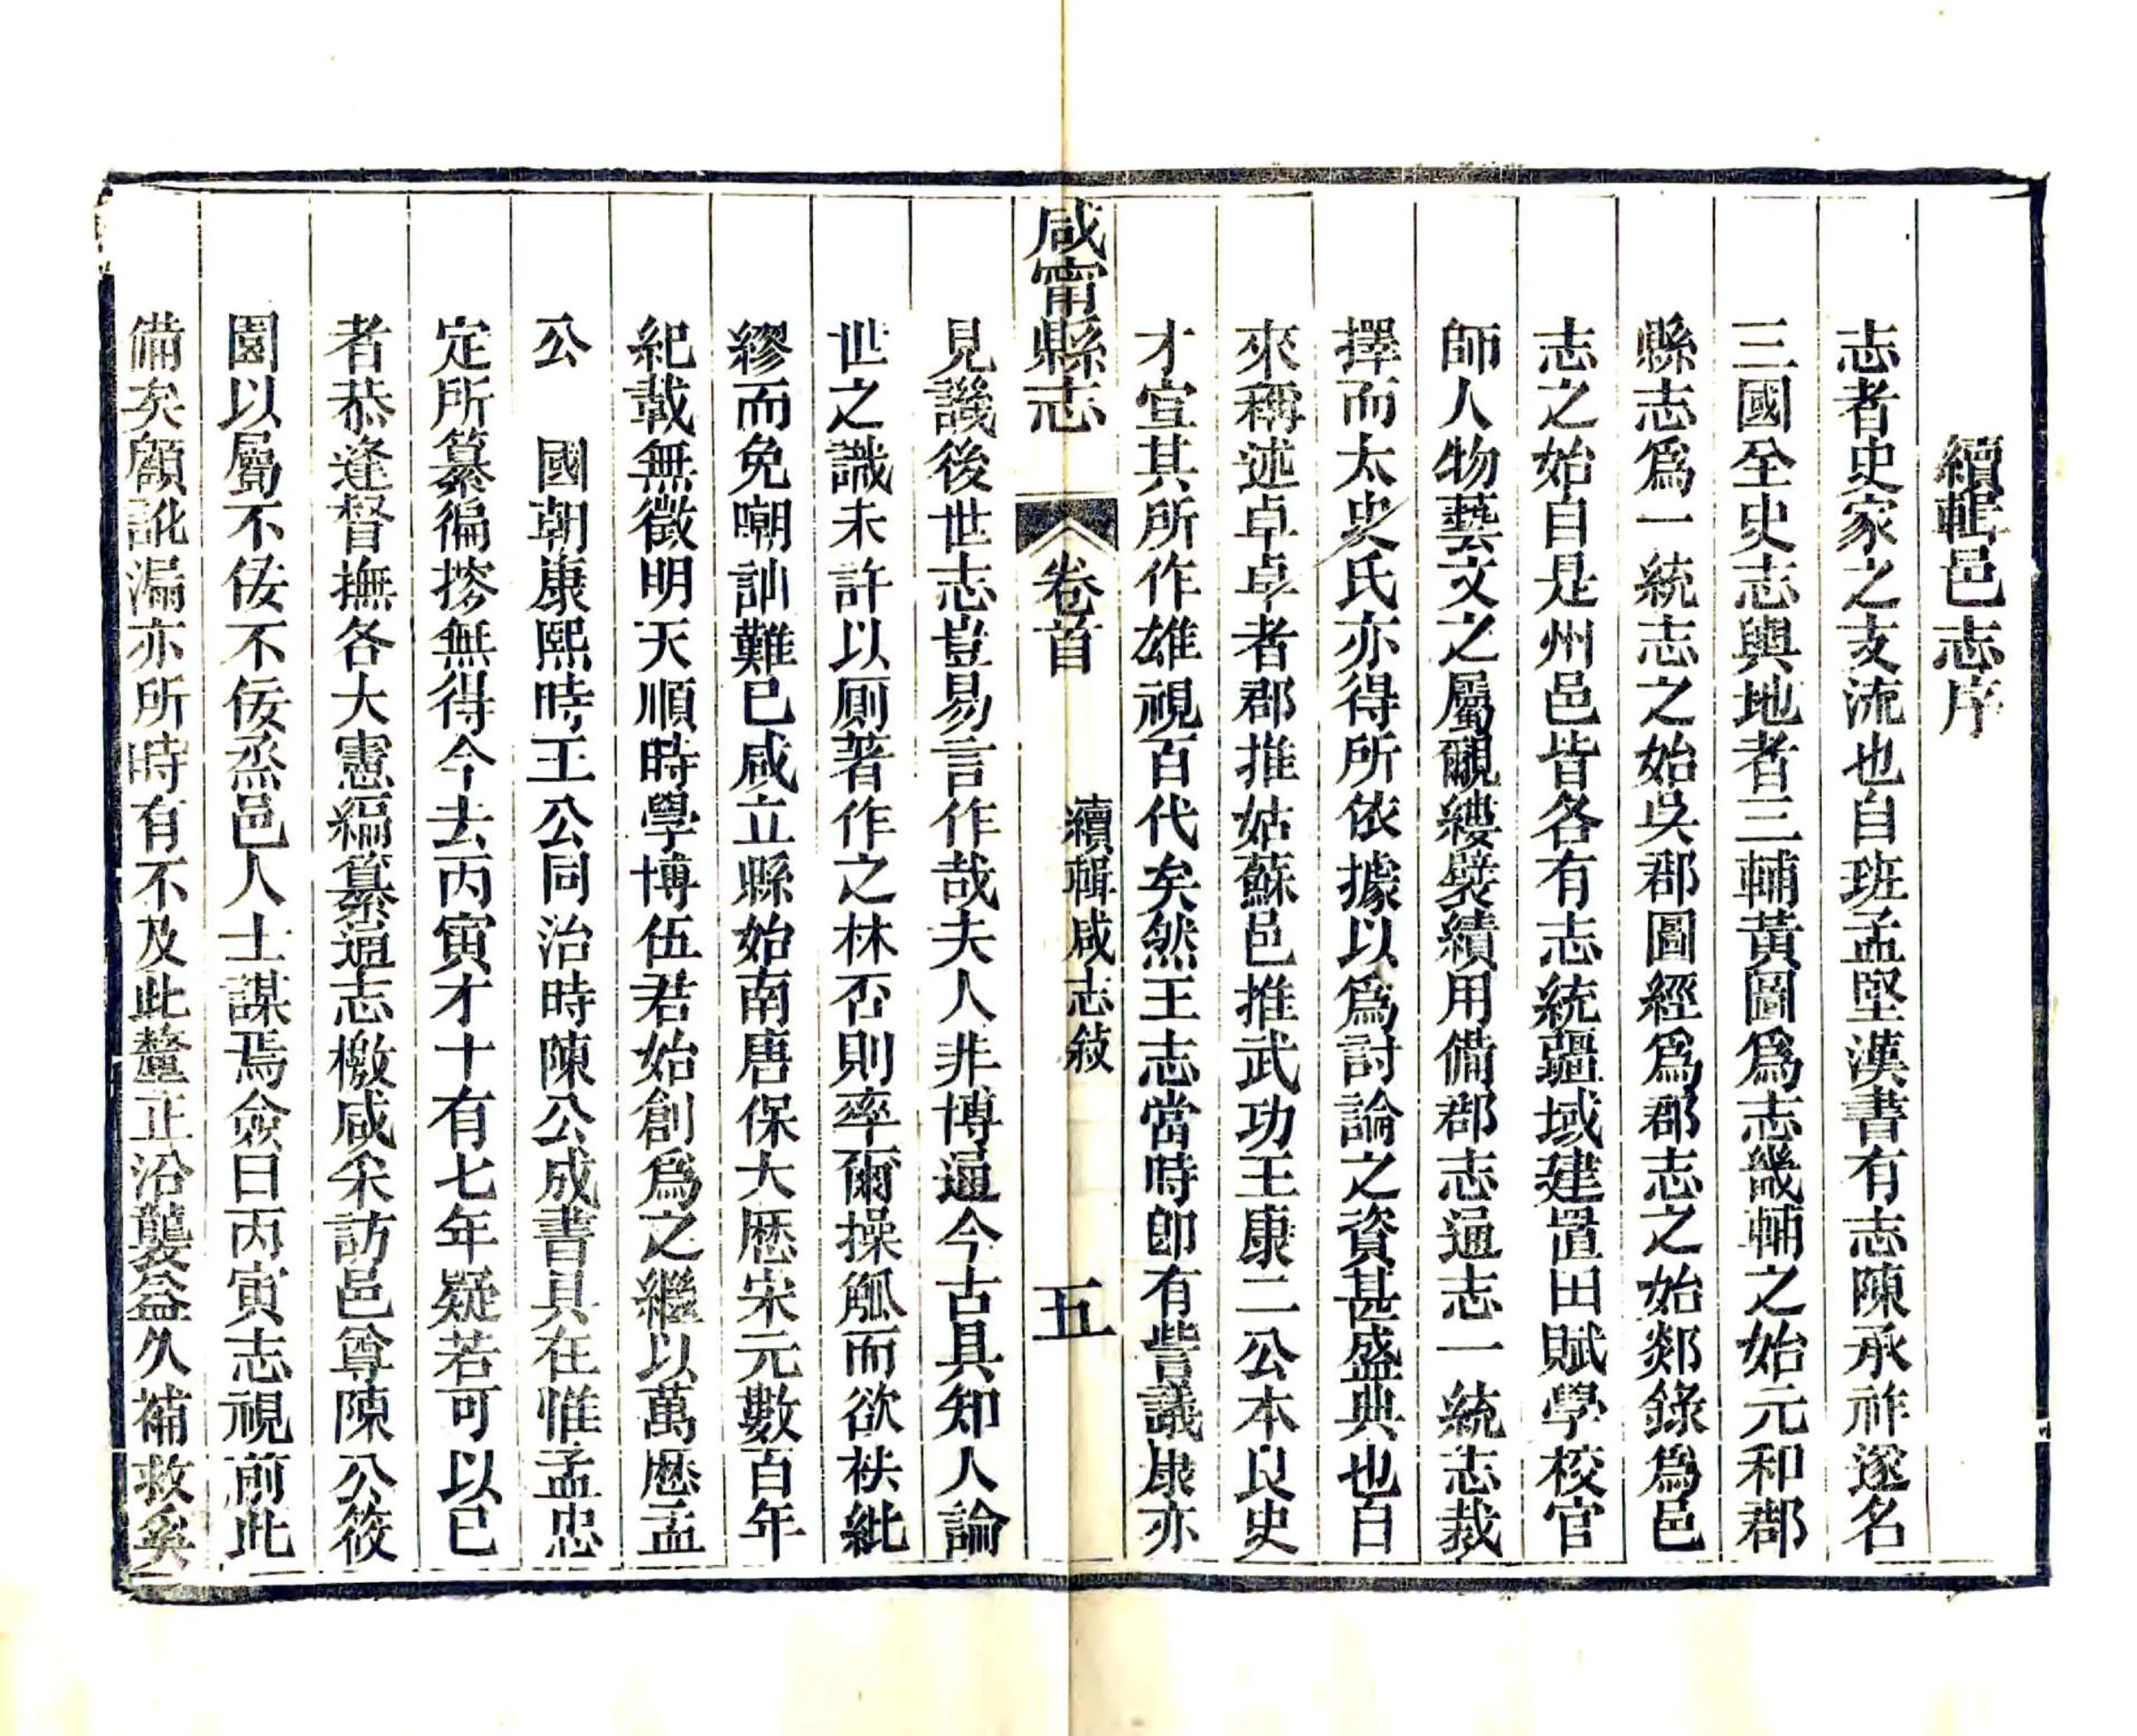 續輯邑志序
志者史家之支流也自班孟堅漢書有志陳承祚遂名
三國全史志輿地者三輔黃圖爲志畿輔之始元和郡
縣志爲一統志之始吳郡圖經爲郡志之始郯錄爲邑
志之始自是州邑皆各有志統疆域建置田賦學校官
師人物藝文之屬覼縷襞績用備郡志通志一統志裁
擇而太史氏亦得所依據以爲討論之資甚盛典也自
來稱述卓卓者郡推姑蘇邑推武功王康二公本良史
才宣其所作雄視百代矣然王志當時卽有訾議康亦
咸甯縣志
卷首
續輯咸志敘
五
見譏後世志豈易言作哉夫人非博通今古具知人論
世之識未許以厠著作之林否則率爾操觚而欲袪紕
繆而免嘲訕難已咸立縣始南唐保大歷宋元數百年
紀載無徵明天順時學博伍君始創爲之繼以萬歷孟
公 國朝康熙時王公同治時陳公成書具在惟孟忠
定所纂徧搜無得今去丙寅才十有七年疑若可以已
者恭逢督撫各大憲編纂通志檄咸采訪邑尊陳公筱
園以屬不佞不佞烝邑人士謀焉僉曰丙寅志視前此
備矣顧訛漏亦所時有不及此釐正沿襲益久補救奚